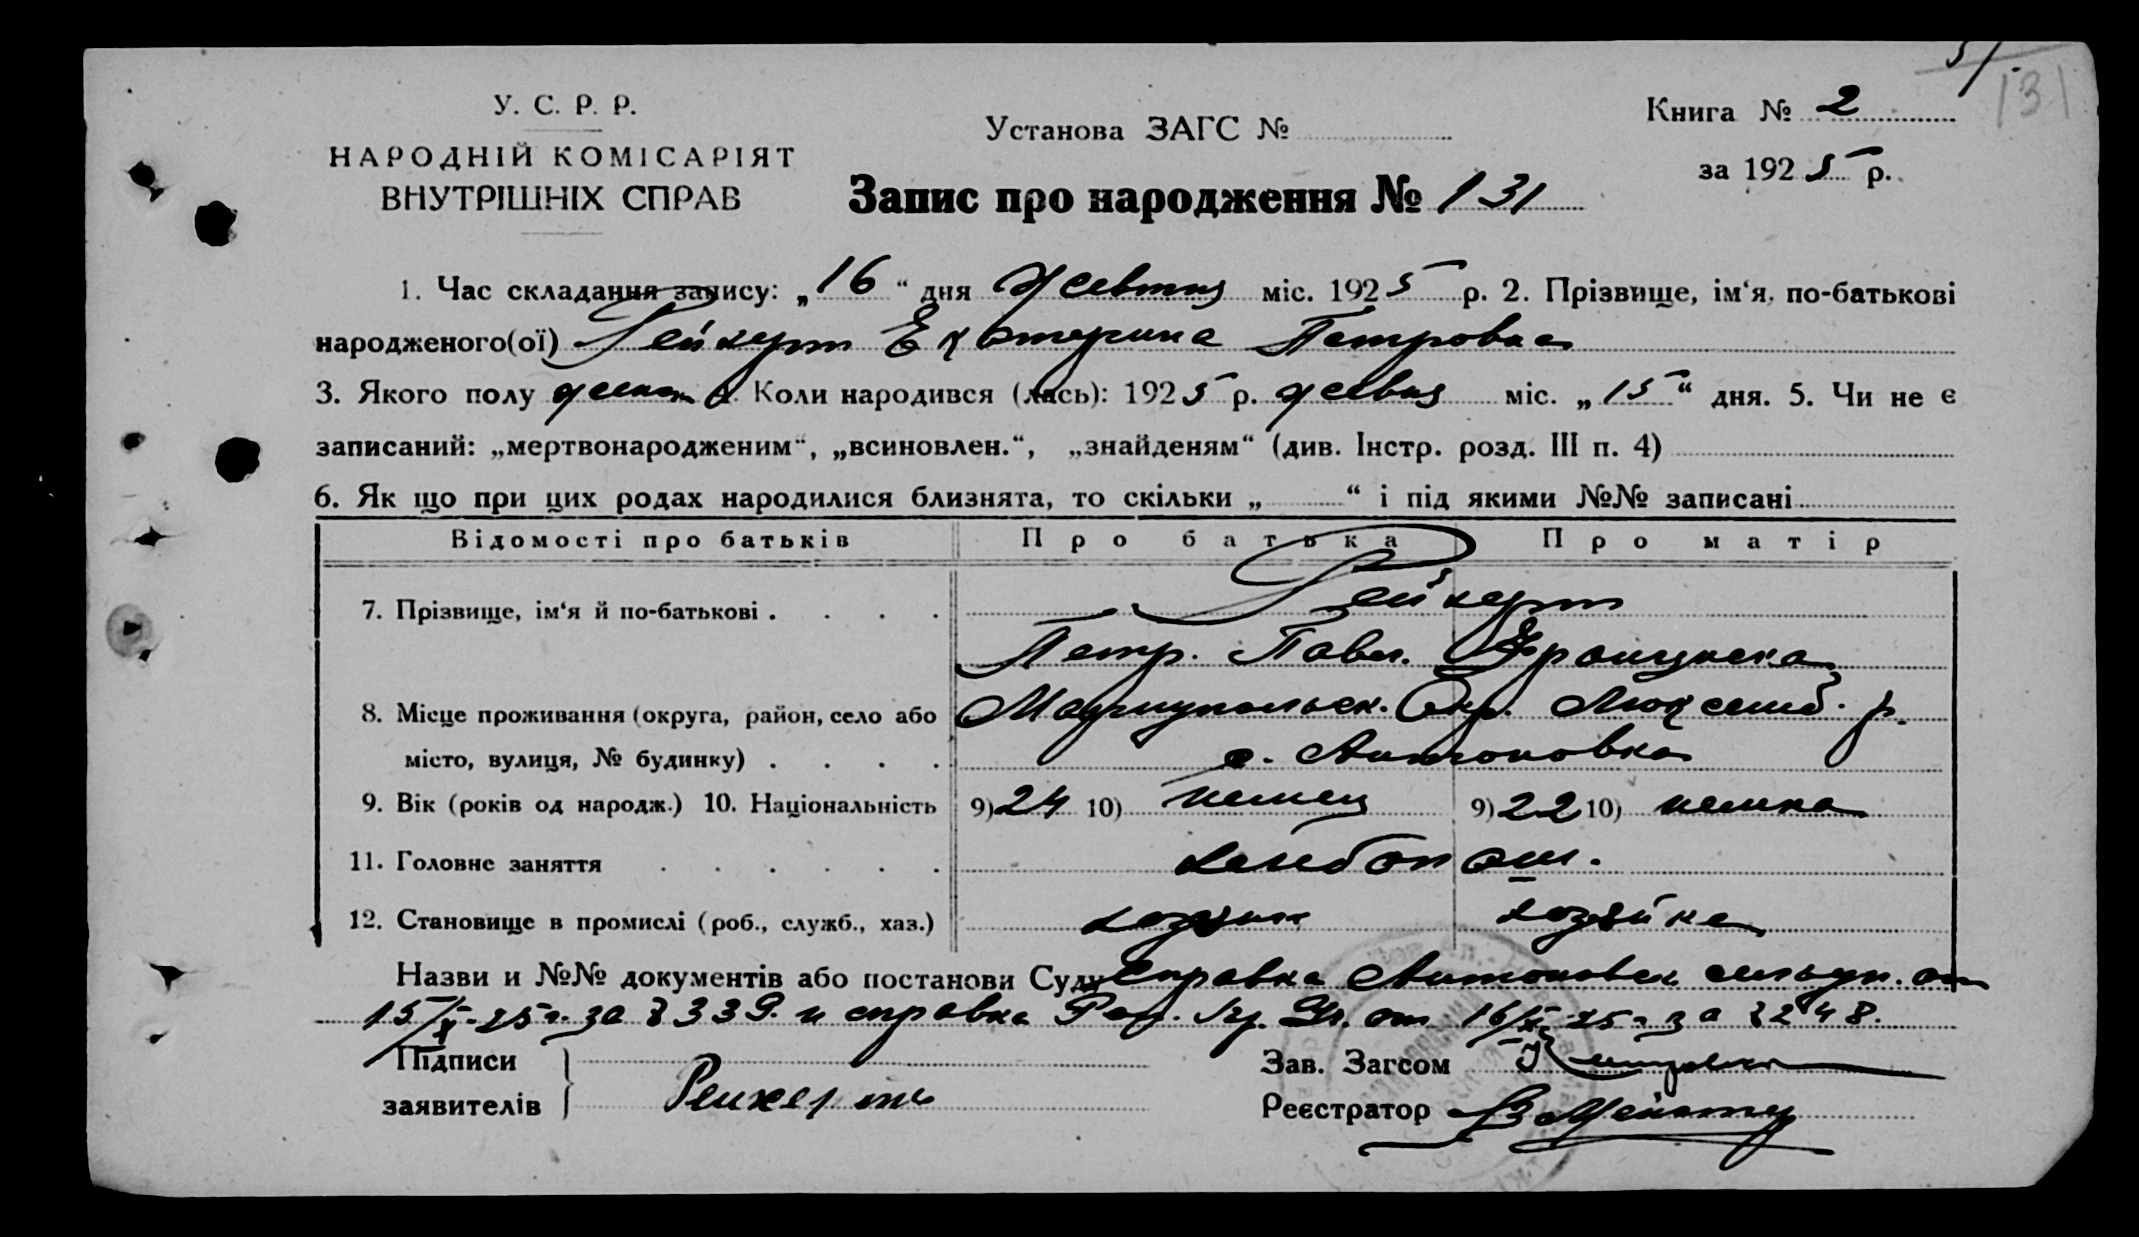 131
У. С. Р. Р.
НАРОДНІЙ КОМІСАРІЯТ
ВНУТРІШНІХ СПРАВ
Установа ЗАГС №
Запис про народження № 131
Книга № 2
за 1925 р.
1. Час складання запису: „16“ дня жовтня міс. 1925 р. 2. Прізвище, ім‘я, по-батькові
народженого(ої) Рейхерт Екатерина Петровна
3. Якого полу женск 4. Коли народився (лась): 1925 р. жовтня міс. „15“ дня. 5. Чи не є
записаний: „мертвонародженим“, „всиновлен.“, „знайденям“ (див. Інстр. розд. III п. 4)
6. Як що при цих родах народилися близнята, то скільки „ “ і під якими №№ записані
Відомості про батьків Про батька Про матір
7. Прізвище, ім‘я й по-батькові . . . . Рейхерт
Петр. Павл. Француска
8. Місце проживання (округа, район, село або Мариупольск. Окр. Люксемб. р.
місто, вулиця, № будинку) . . . . с. Антоновка
9. Вік (років од народж.) 10. Національність 9) 24 10) немец 9) 22 10) немка
11. Головне заняття . . . . . . хлебопаш.
12. Становище в промислі (роб., служб., хаз.) хозяин хозяйка
Назви и №№ документів або постанови Суду справка Антоновск сельун. от
15/X-25 г. за № 339 и справка от 16/X 25 г за № 248.
Підписи
заявителів Рейхерть
Зав. Загсом
Реєстратор